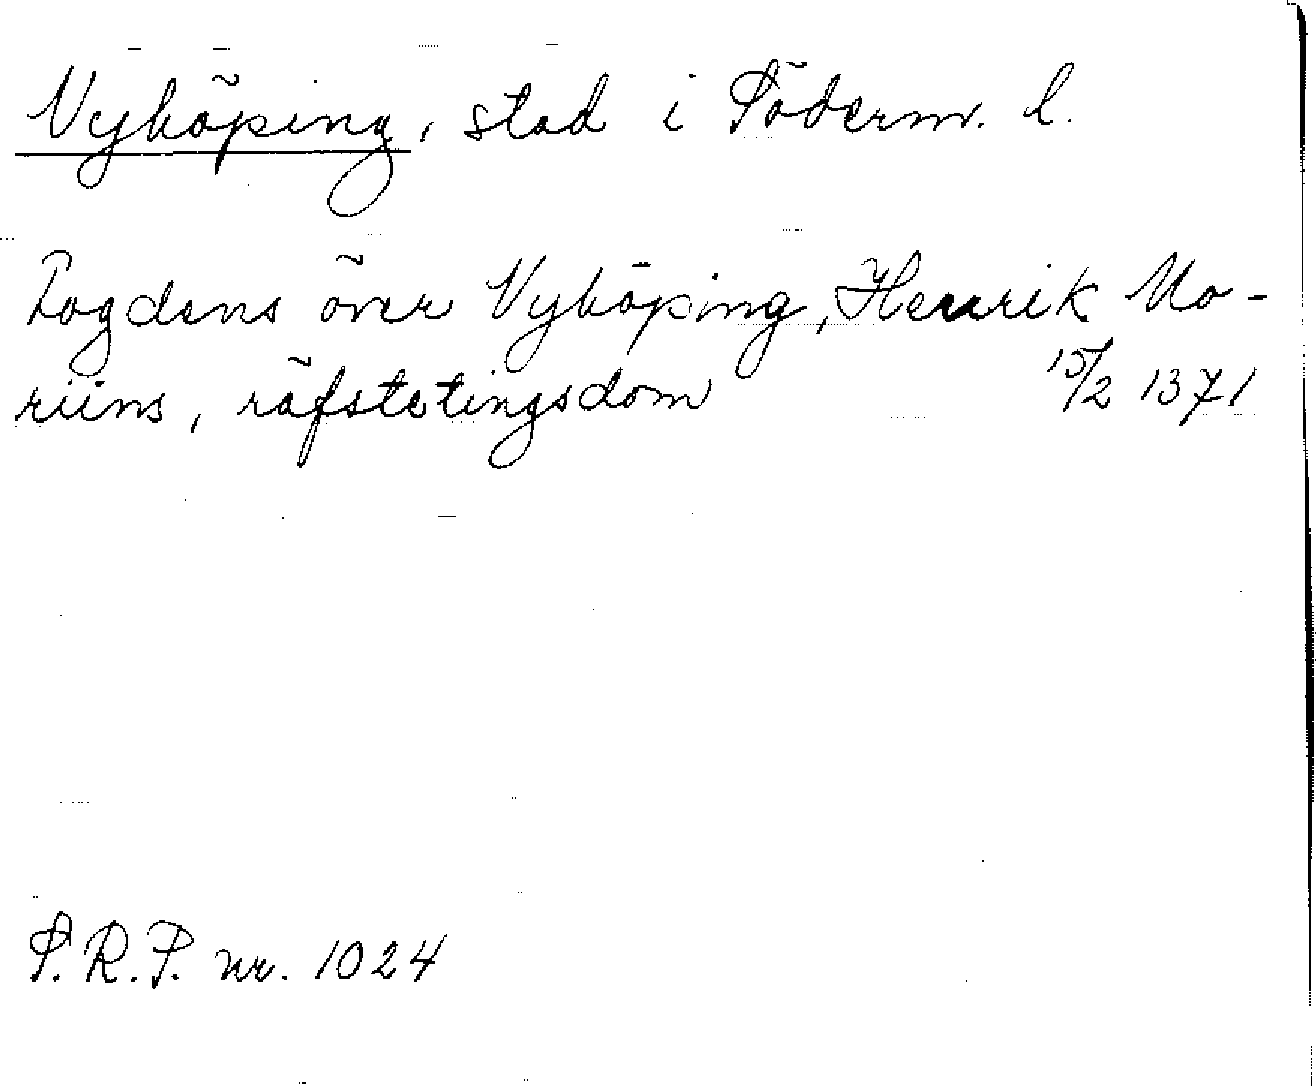 Nyköping, stad i Söderm. l.
Fogdens över Nyköping, Henrik Mo-
riins, räfstetingsdom 15/2 1371
S.R.P. nr. 1024